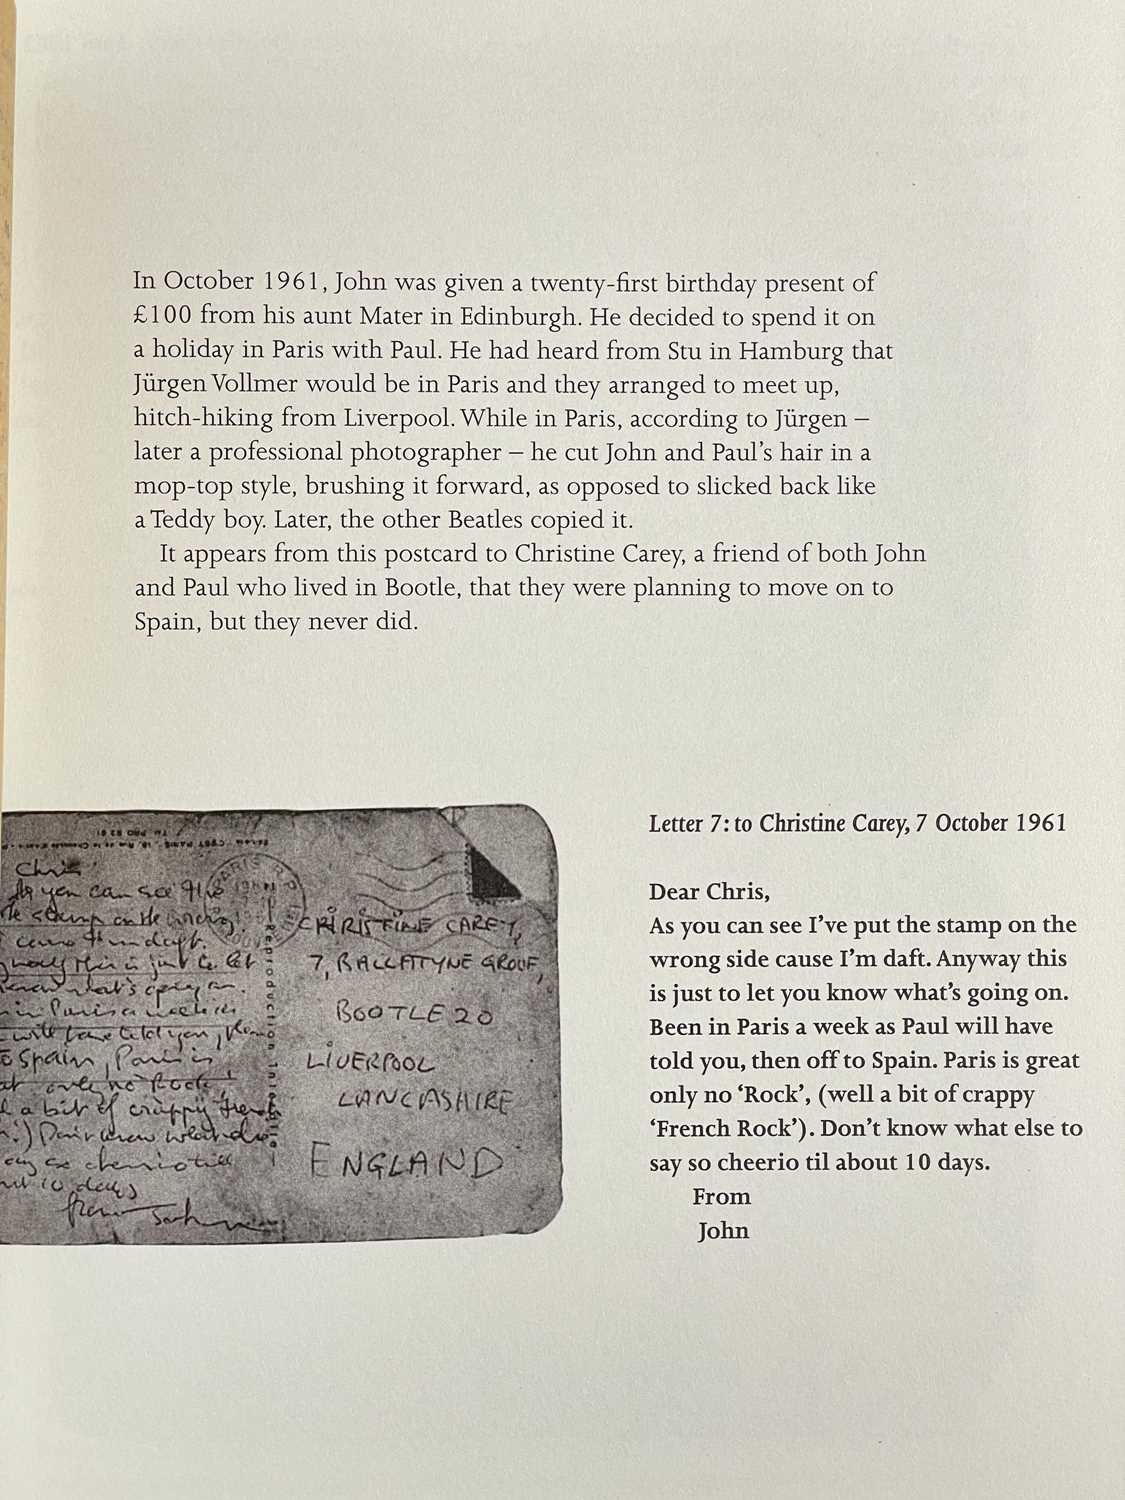 In October 1961, John was given a twenty-first birthday present of
£100 from his aunt Mater in Edinburgh. He decided to spend it on
a holiday in Paris with Paul. He had heard from Stu in Hamburg that
Jürgen Vollmer would be in Paris and they arranged to meet up,
hitch-hiking from Liverpool. While in Paris, according to Jürgen –
later a professional photographer – he cut John and Paul's hair in a
mop-top style, brushing it forward, as opposed to slicked back like
a Teddy boy. Later, the other Beatles copied it.
It appears from this postcard to Christine Carey, a friend of both John
and Paul who lived in Bootle, that they were planning to move on to
Spain, but they never did.
Chris
As you can see I've
stamp on the wrong
cause I'm daft.
this is just to let
know what's going on.
in Paris a week as
will have told you, then
to Spain, Paris is
only no 'Rock'
a bit of crappy French
Don't know what else
say so cheerio till
10 days
from John
CHRISTINE CAREY,
7, BALLATYNE GROVE,
BOOTLE 20
LIVERPOOL
LANCASHIRE
ENGLAND
Letter 7: to Christine Carey, 7 October 1961
Dear Chris,
As you can see I've put the stamp on the
wrong side cause I'm daft. Anyway this
is just to let you know what's going on.
Been in Paris a week as Paul will have
told you, then off to Spain. Paris is great
only no 'Rock', (well a bit of crappy
'French Rock'). Don't know what else to
say so cheerio til about 10 days.
From
John